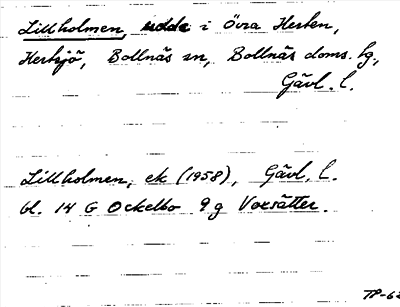 Lillholmen, udde i övra Herten,
Hertsjö, Bollnäs sn, Bollnäs doms. hg.,
Gävl. l.
Lillholmen, ek (1958), Gävl. l.
bl. 14 G Ockelbo 9 g Voxsätter.
TP-62